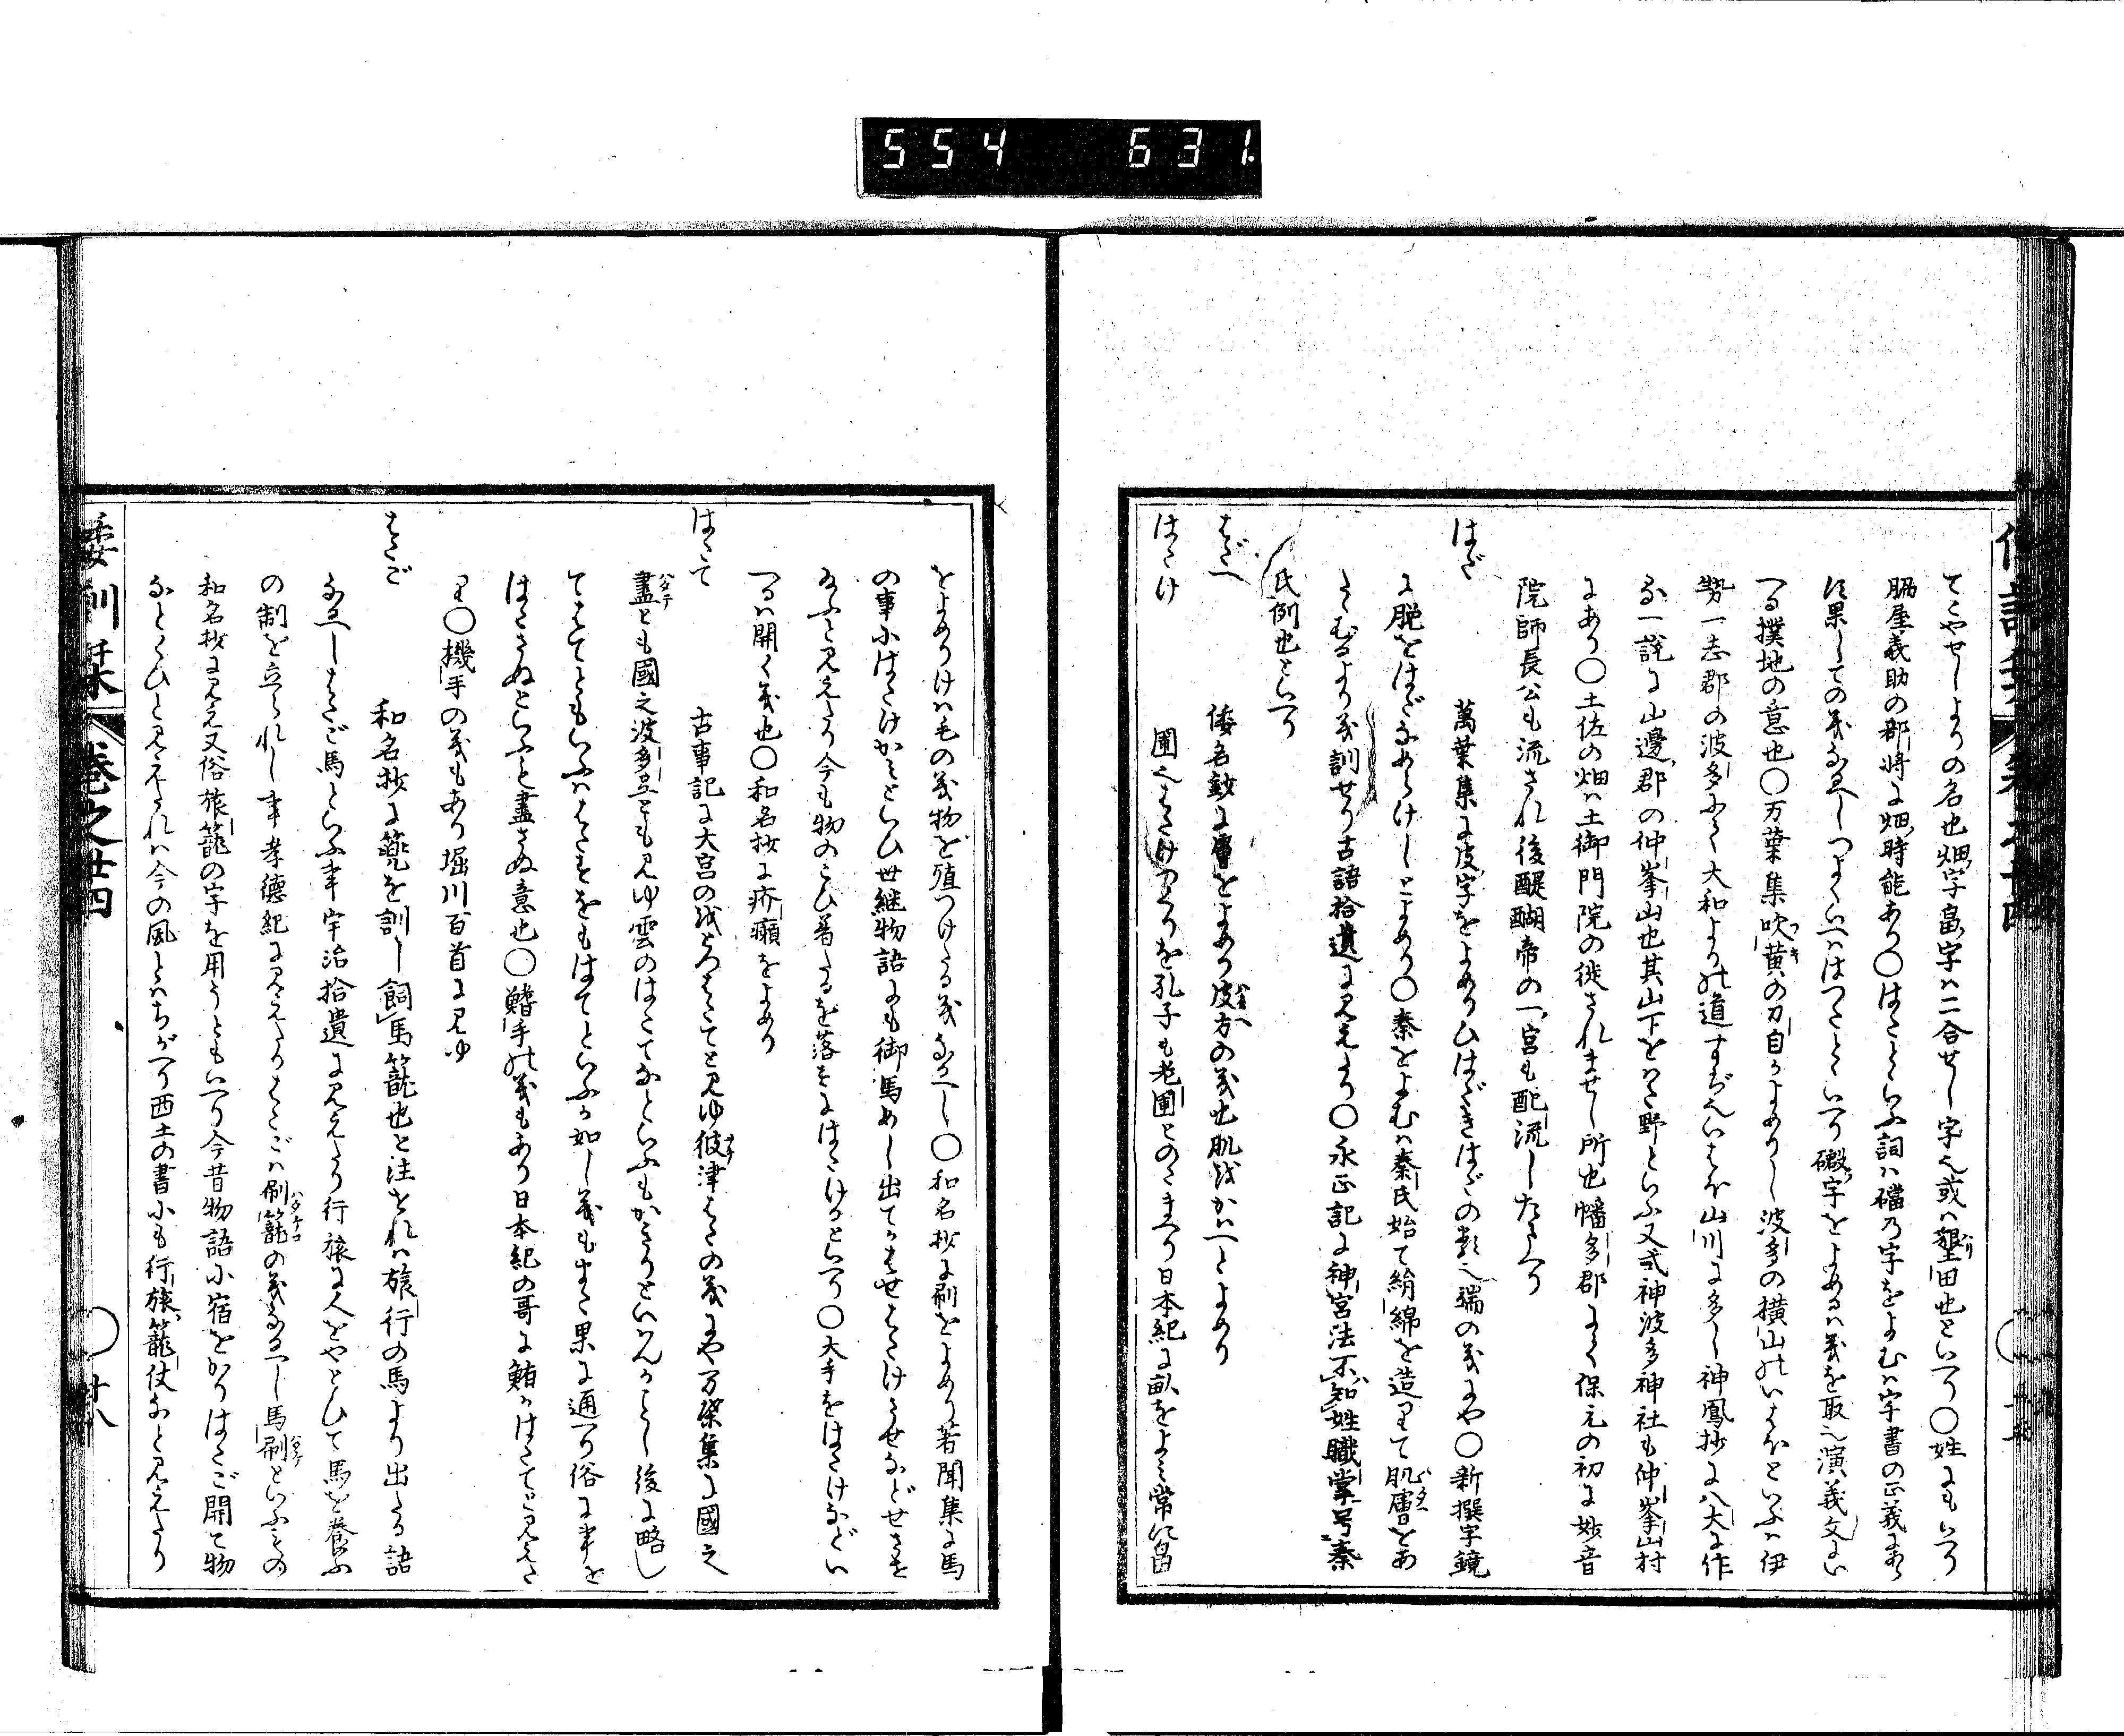 554 631.
てこやせしよりの名也畑字畠字ハ二合せし字也或ハ墾田也といへり〇姓にもいへり
脇屋義助の部將に畑時能あり〇はたといふ詞ハ礑乃字をよむハ字書の正義にあら
す果しての義なるへしつよくいへハはつたといへり磤字をよめるハ義を取也演義文にい
へる撲地の意也〇万葉集吹黄の刀自かよめりし波多の横山のいはほといふハ伊
勢一志郡の波多にて大和よりの道すぢ也いはほ山川に多し神鳳抄に八太に作
る一説に山邊郡の仲峯山也其山下をハた野といふ又貳神波多神社も仲峯山村
にあり〇土佐の畑ハ土御門院の徙されませし所也幡多郡にて保元の初に妙音
院師長公も流され後醍醐帝の一宮も配流したまへり
はだ 萬葉集に皮字をよめりひはだきはだの類也端の義にや〇新撰字鏡
に脱をはだぬらけしとよめり〇秦をよむハ秦氏始て絹綿を造りて肌膚をあ
たゝむるより義訓せり古語拾遺に見えたり〇永正記に神宮法不知姓職掌号秦
氏例也といへり
はだへ 倭名鈔に膚をよめり皮方の義也肌をかハへとよめり
はたけ 圃也はたけつくりを孔子も老圃とのたまへり日本紀に畝をよミ常に畠
をよめりけハ毛の義物を殖つけたる義なるへし〇和名抄に刷をよめり著聞集に馬
の事にはたけかミといひ世継物語にも御馬めし出てかはせはたけさせなどせさせ
給ふと見えたり今も物のこひ着たるを落すにはたけるといへり〇大手をはたけなどい
へるハ開く義也〇和名抄に疥癩をよめり
はたて 古事記に大宮のをとつはたてと見ゆ彼津はたの義にや万葉集に國之
盡とも國之波多弖とも見ゆ雲のはたてなといふもかきりといハんかことし後に略し
てはてともいふハはたをもはてといふか如し義もまた果に通へり俗に事を
はたさぬといふと盡さぬ意也〇鰭手の義もあり日本紀の哥に鮪かはたてと見えた
り〇機手の義もあり堀川百首に見ゆ
はたご 和名抄に篼を訓し飼馬籠也と注せれハ旅行の馬より出たる語
なるへしはたご馬といふ事宇治拾遺に見えたり行旅に人をやとひて馬を養ふ
の制を立られし事孝德紀に見えたりはたごハ刷籠の義なるへし馬刷といふもの
和名抄に見え又俗旅籠の字を用うともいへり今昔物語に宿をかりはたご開て物
なとくひと見えたれハ今の風とハちがへり西土の書にも行旅籠仗なと見えたり
倭訓栞 巻之廿四 〇廿八